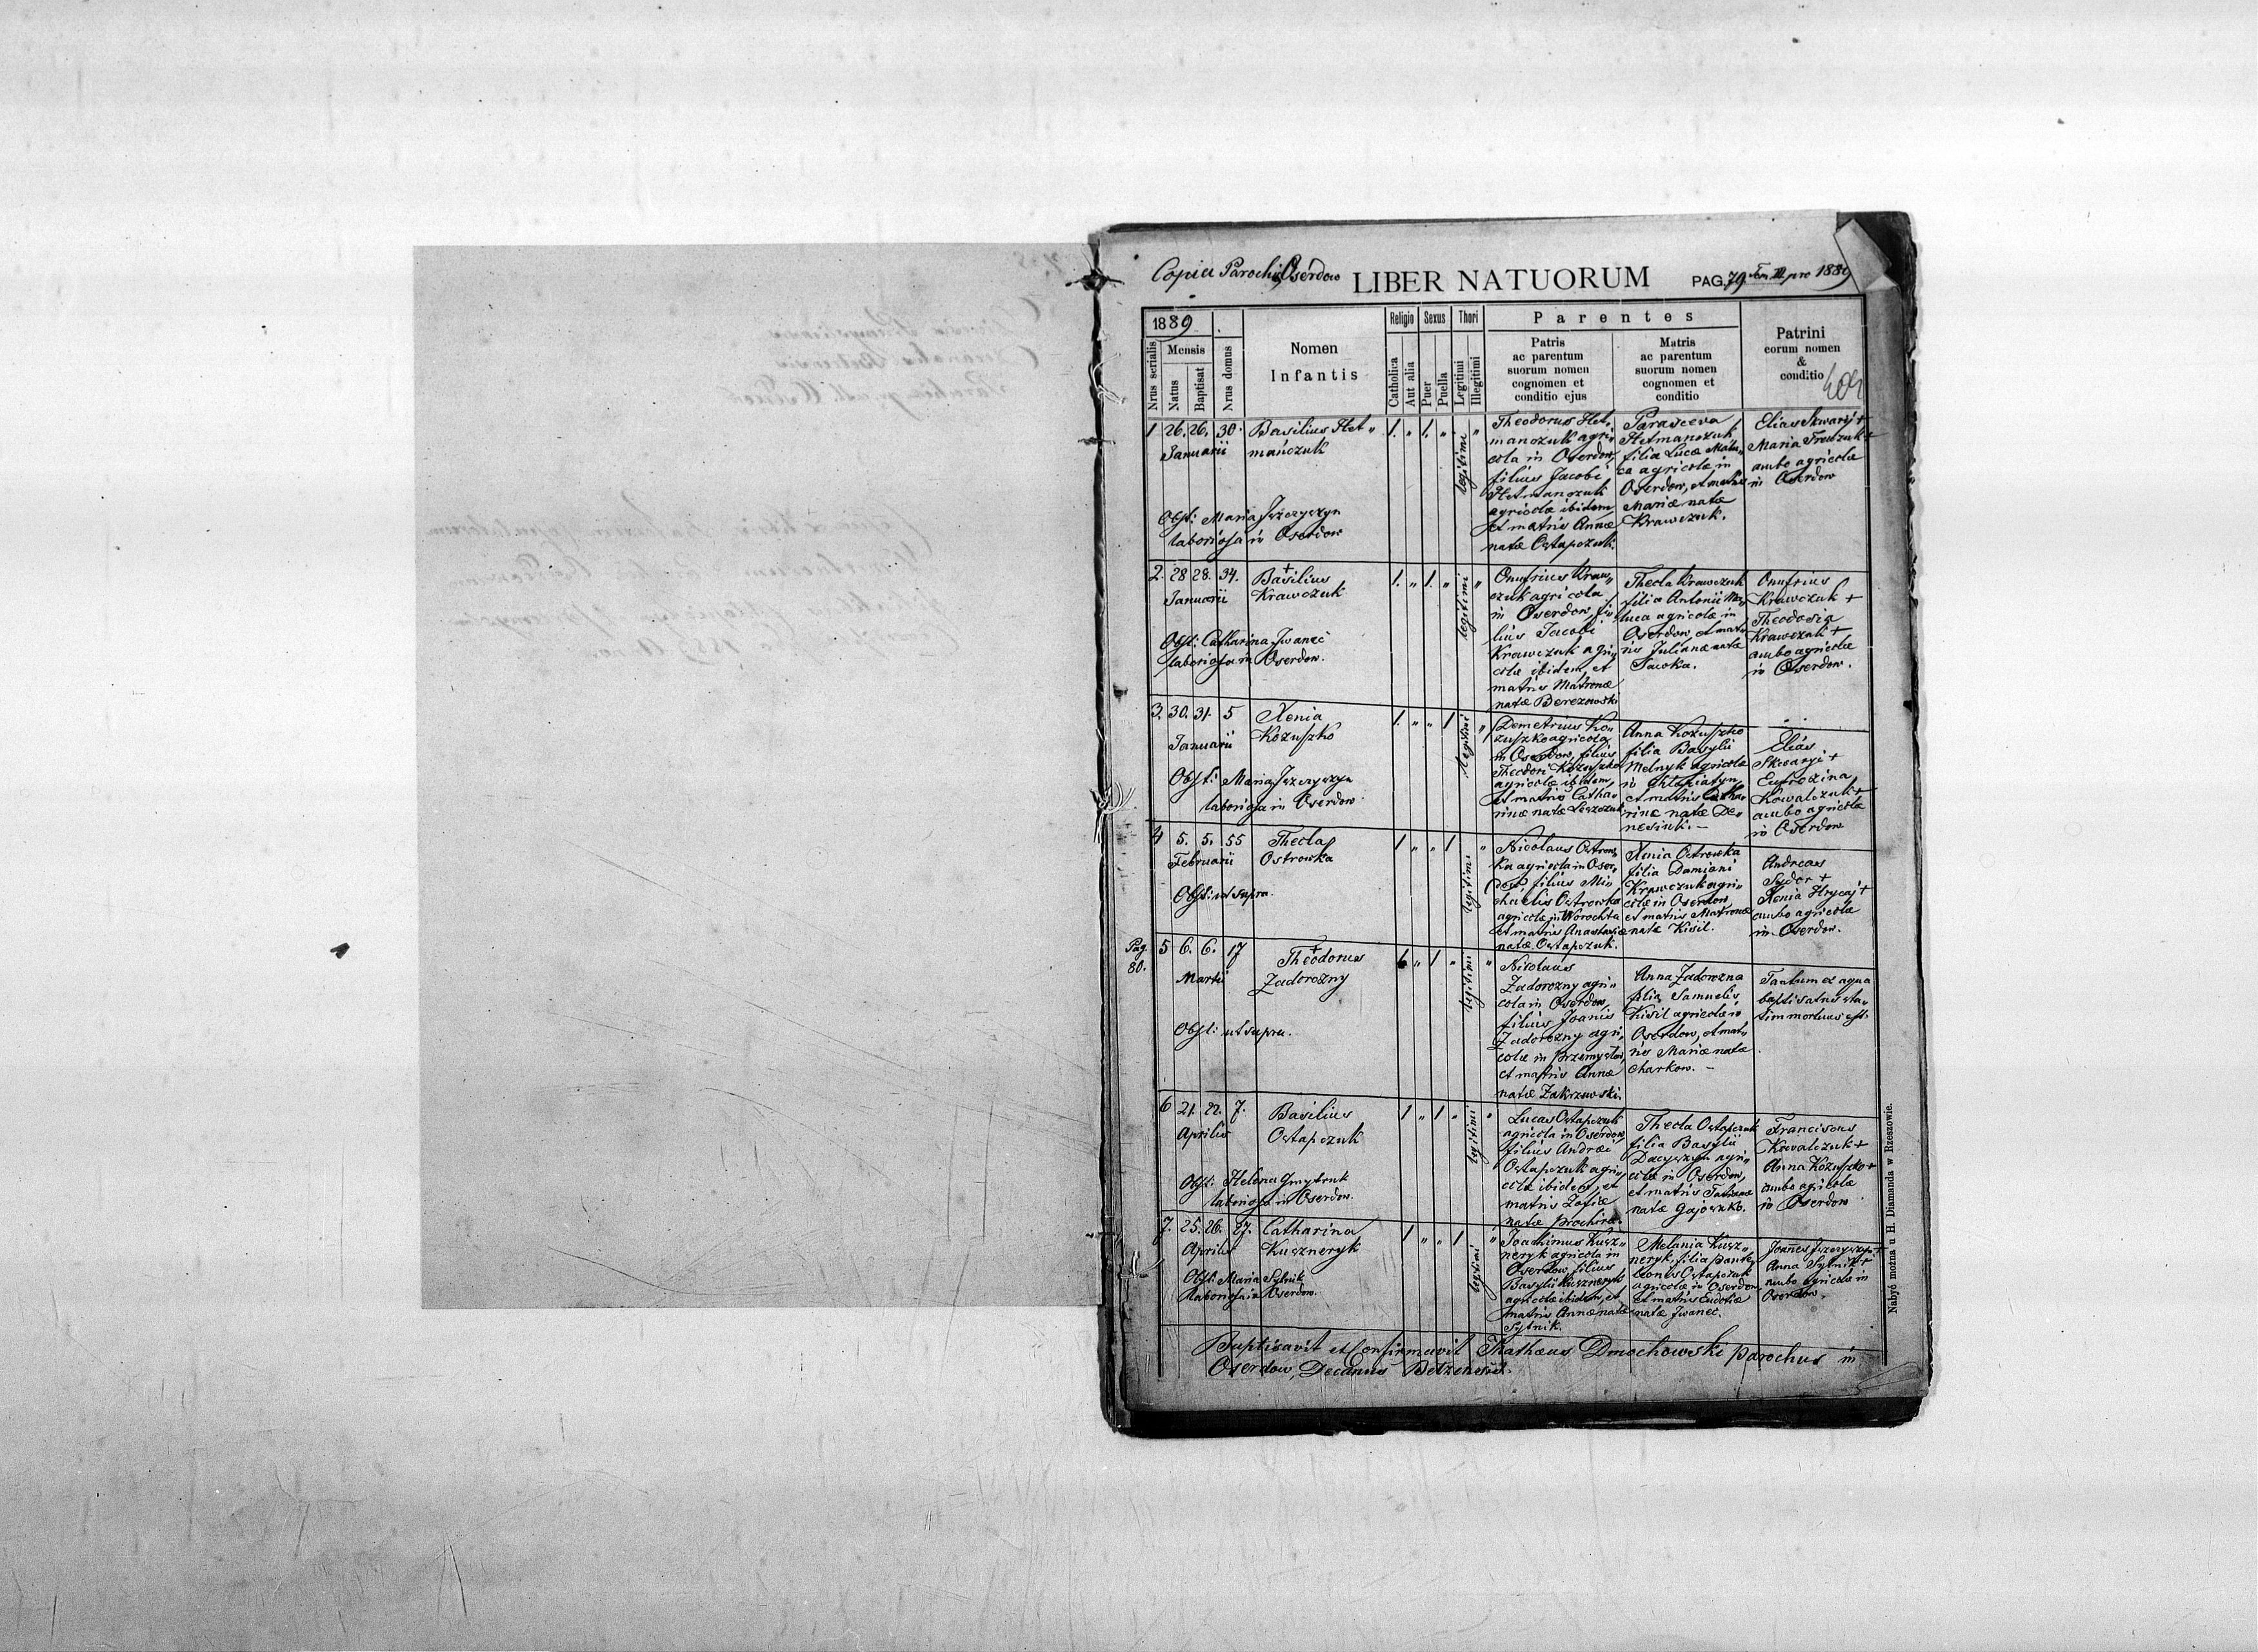 Copia Parochiæ Oserdow LIBER NATUORUM PAG. 79 Tom III pro 1889
1889
Nrus serialis
Mensis
Natus
Baptisat
Nrus domus
Nomen
Infantis
Religio
Catholica
Aut alia
Sexus
Puer
Puella
Thori
Legitimi
Illegitimi
Parentes
Patris
ac parentum
suorum nomen
cognomen et
conditio ejus
Matris
ac parentum
suorum nomen
cognomen et
conditio
Patrini
eorum nomen
&
conditio
1 26. 26. 30.
Januarii
Basilius Het„
mańczuk
Obst: Maria Jszczyszyn
laboriosa in Oserdow
1. „ 1. „ legitimi „
Theodorus Het„
manczuk agri„
cola in Oserdow,
filius Jacobi
Hetmanczuk
agricolæ ibidem
et matris Annæ
natæ Ostapczuk.
Parasceva
Hetmanczuk,
filia Lucæ
ca agricolæ in
Oserdow, et matris
Mariæ natæ
Krawczuk.
Elias Skwaryj +
Maria
ambo agricolæ
in Oserdow
2. 28 28. 34.
Januarii
+
Basilius
Krawczuk
Obst: Catharina Jwanec
laboriosa in Oserdow.
1. „ 1. „ legitimi „
Onufrius Kraw„
czuk agricola
in Oserdow, fi„
lius Jacobi
Krawczuk agri„
colæ ibidem, et
matris Matronæ
natæ Berezowski
Thecla Krawczuk
filia Antonii Ma„
luca agricolæ in
Oserdow, et mat„
ris Julianæ natæ
Onufrius
Krawczuk +
Theodosia
Krawczuk +
ambo agricolæ
in Oserdow.
3. 30. 31. 5
Januarii
Xenia
Kozuszko
Obst: Maria Jszczyszyn
laboriosa in Oserdow.
1. „ „ 1 legitimi „
Demetrius Ko„
zuszko agricola
in Oserdow, filius
Theodori Kozuszko
agricolæ ibidem,
et matris Catha„
rinæ natæ Leszczuk
Anna Kozuszko
filia Basylii
Melnyk agricolæ
in Chłopiatyn,
et matris Catha„
rinæ natæ De„
nesiuk. —
Elias
Skwaryj +
Eufrozina
Kowalczuk +
ambo agricolæ
in Oserdow
4 5. 5. 55
Februarii
Thecla
Ostrowka
Obst: ut supra.
1 „ „ 1 legitimi „
Nicolaus Ostrow„
ka agricola in Oser„
dow, filius Mi„
chaelis Ostrowka
agricolæ in Worochta
et matris Anastasiæ
natæ Ostapczuk.
Xenia Ostrowka
filia Damiani
Krawczuk agri„
colæ in Oserdow,
et matris Matronæ
natæ Kisil.
Andreas
Sydor +
Xenia Hrycaj +
ambo agricolæ
in Oserdow.
Pag.
80.
5 6. 6. 17
Martii
+
Theodorus
Zadorozny
Obst: ut supra.
1 „ 1 „ legitimi „
Nicolaus
Zadorozny agri„
cola in Oserdow,
filius Joanis
Zadorozny agri„
colæ in
et matris Annæ
natæ Zakrzewski.
Anna Zadorozna
filia Samuelis
Kisil agricolæ in
Oserdow, et mat„
ris Mariæ natæ
Charkow. —
Tantum ex aqua
baptisatus sta„
tim mortuus est.
6 21. 22. 7.
Aprilis
Basilius
Ostapczuk
Obst: Helena Gmytruk
laboriosa in Oserdow.
1 „ 1 „ legitimi „
Lucas Ostapczuk
agricola in Oserdow,
filius Andræi
Ostapczuk agri„
colæ ibidem, et
matris Zofiæ
natæ
Thecla Ostapczuk
filia Basylii
Dacyszyn agri„
colæ in Oserdow,
et matris Tatianæ
natæ
Franciscus
Kowalczuk +
Anna Kozuszko +
ambo agricolæ
in Oserdow.
7. 25. 26. 27.
Aprilis
Catharina
Kuszneryk
Obst: Maria Sytnik
laboriosa in Oserdow.
1 „ „ 1 legitimi „
Joachimus Kusz„
neryk agricola in
Oserdow, filius
Basylii Kuszneryk
agricolæ ibidem, et
matris Annæ natæ
Sytnik.
Melania Kusz„
neryk, filia Pante„
leonis Ostapczuk
agricolæ in Oserdow,
et matris Eudoxiæ
natæ Jwanec.
Joannes Jszczyszyn +
Anna Sytnik +
ambo agricolæ in
Oserdow.
Baptisavit et Confirmavit Mathæus Dmochowski parochus in
Oserdow, Decanus Belzensis.
Nabyć można u H. Diamanda w Rzeszowie.